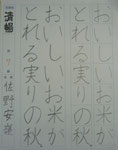 おいしいお米が
とれる実りの秋
おいしいお米が
とれる実りの秋
清暢
佐野安